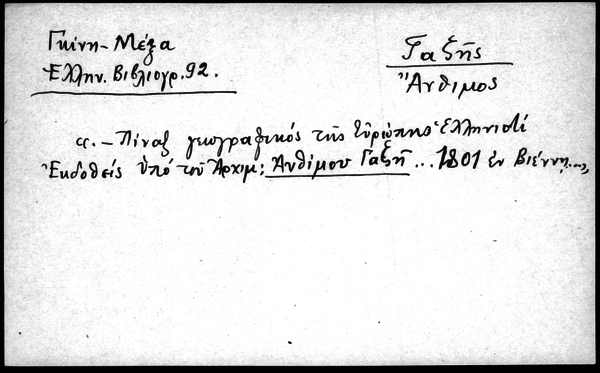 Γκίνη-Μέξα
Ἑλλην. Βιβλιογρ. 92.
Γαζῆς
Ἄνθιμος
α. – Πίναξ γεωγραφικός τῆς Εὐρώπης Ἑλληνιστί
Ἐκδοθείς ὑπό τοῦ Ἀρχιμ: Ἀνθίμου Γαζῆ ... 1801 ἐν Βιέννῃ...,